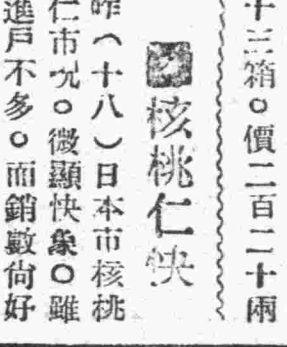 十三箱。價二百二十兩
核桃仁快
昨(十八)日本市核桃
仁市况。微顯快象。雖
進戶不多。而銷數尙好